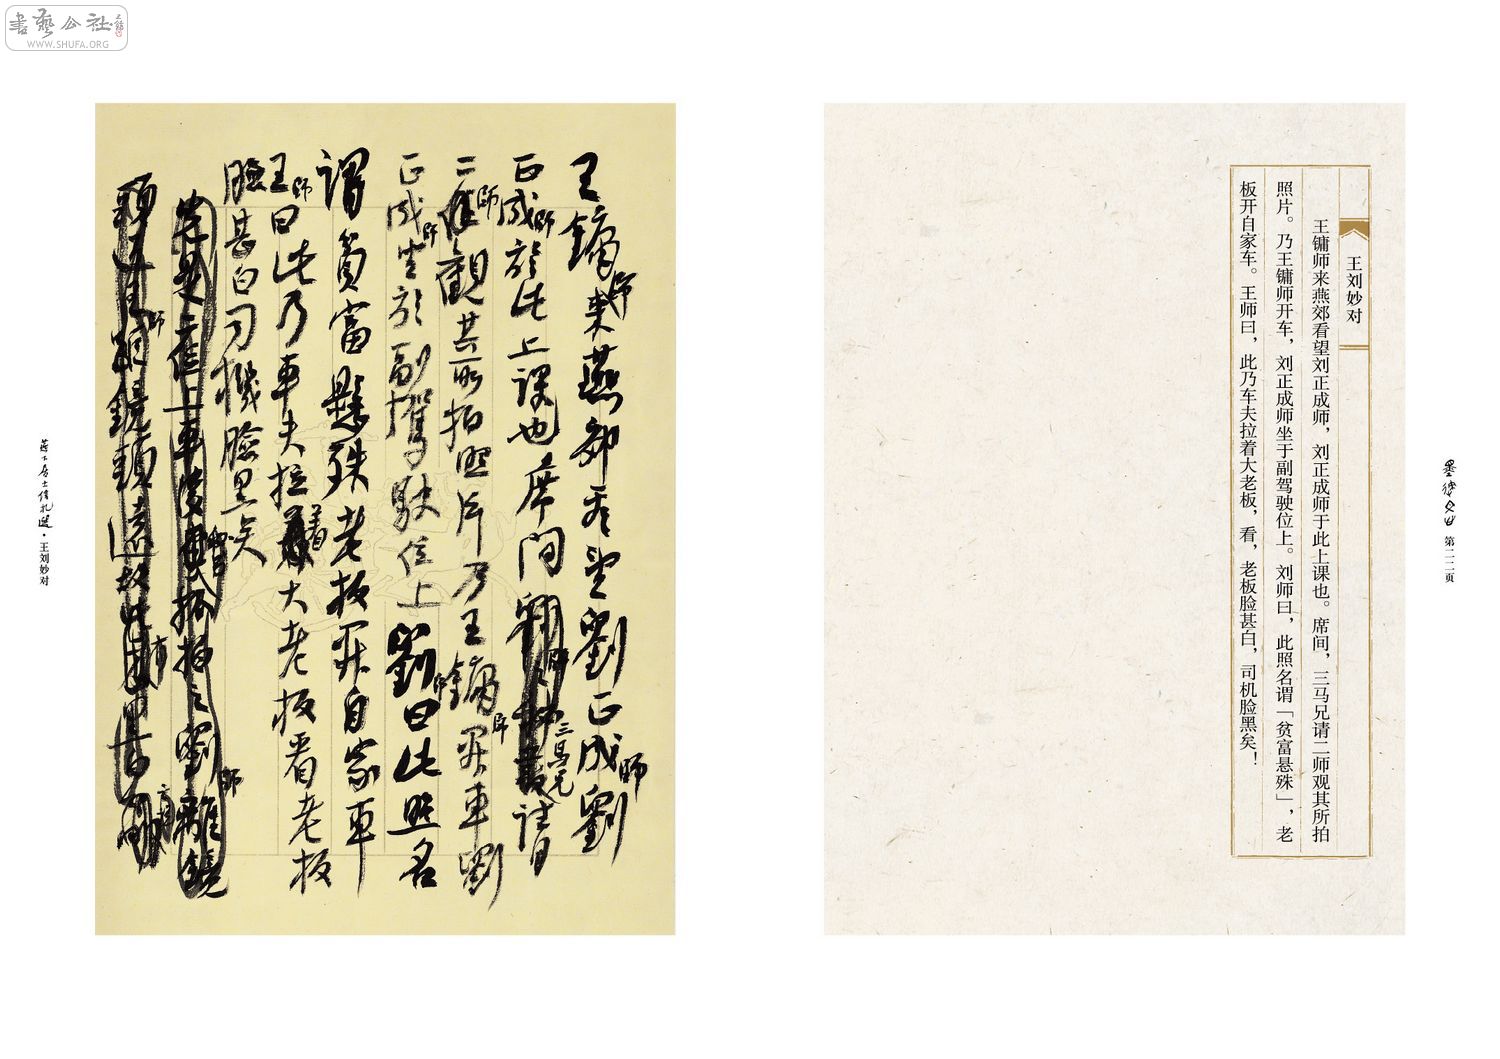 書藝公社
WWW.SHUFA.ORG
王刘妙对
王镛师来燕郊看望刘正成师，刘正成师于此上课也。席间，三马兄请二师观其所拍
照片。乃王镛师开车，刘正成师坐于副驾驶位上。刘师曰，此照名谓「贫富悬殊」，老
板开自家车。王师曰，此乃车夫拉着大老板，看，老板脸甚白，司机脸黑矣！
第二二页
王鏞師來燕郊看望劉正成師劉
正成師於此上課也席間三馬兄請
二師觀其所拍照片乃王鏞師開車劉
正成師坐於副駕駛位上劉師曰此照名
謂貧富懸殊老板開自家車
王師曰此乃車夫拉着大老板看老板
臉甚白司機臉黑矣
·王刘妙对